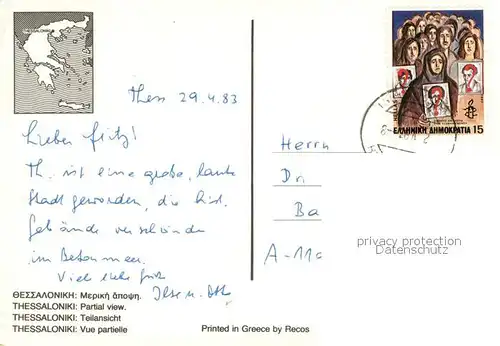 THESSALONIKI
Thess 29.4.83
Lieber Fritz!
Th. ist eine große, laute
Stadt geworden, die hist.
Gebäude verschwinden
im Betonmeer.
Viele liebe Grüße
Ilse u. Otto
ΕΛΛΗΝΙΚΗ ΔΗΜΟΚΡΑΤΙΑ 15
Herrn
Dri
Ba
A-110
privacy protection
Datenschutz
ΘΕΣΣΑΛΟΝΙΚΗ: Μερική άποψη.
THESSALONIKI: Partial view.
THESSALONIKI: Teilansicht
THESSALONIKI: Vue partielle
Printed in Greece by Recos